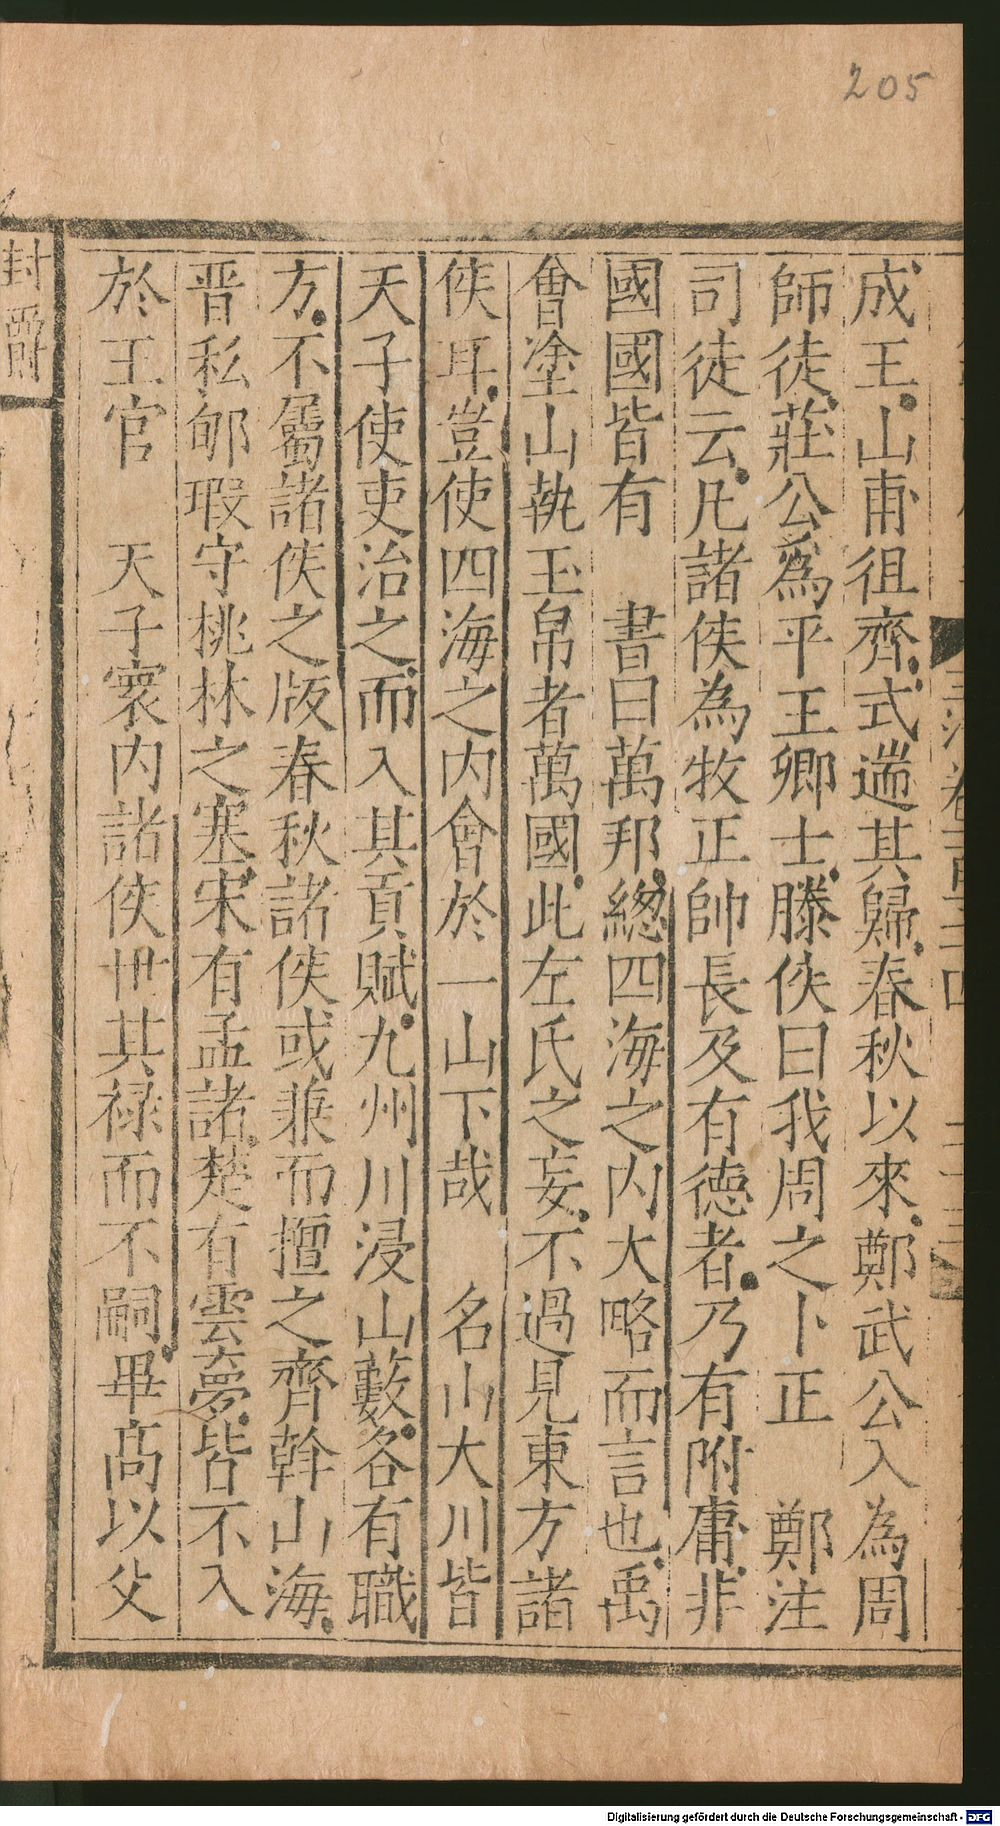 205
成王山甫徂齊式遄其歸春秋以來鄭武公入為周
師徒莊公為平王卿士滕侯曰我周之卜正　鄭注
司徒云凡諸侯為牧正帥長及有德者乃有附庸非
國國皆有　書曰萬邦總四海之內大略而言也禹
會塗山執玉帛者萬國此左氏之妄不過見東方諸
侯耳豈使四海之內會於一山下哉　名山大川皆
天子使吏治之而入其貢賦九州川浸山藪各有職
方不屬諸侯之版春秋諸侯或兼而擅之齊斡山海
晋私郇瑕守桃林之塞宋有孟諸楚有雲夢皆不入
於王官　天子寰内諸侯世其禄而不嗣畢高以父
封爵
Digitalisierung gefördert durch die Deutsche Forschungsgemeinschaft - DFG